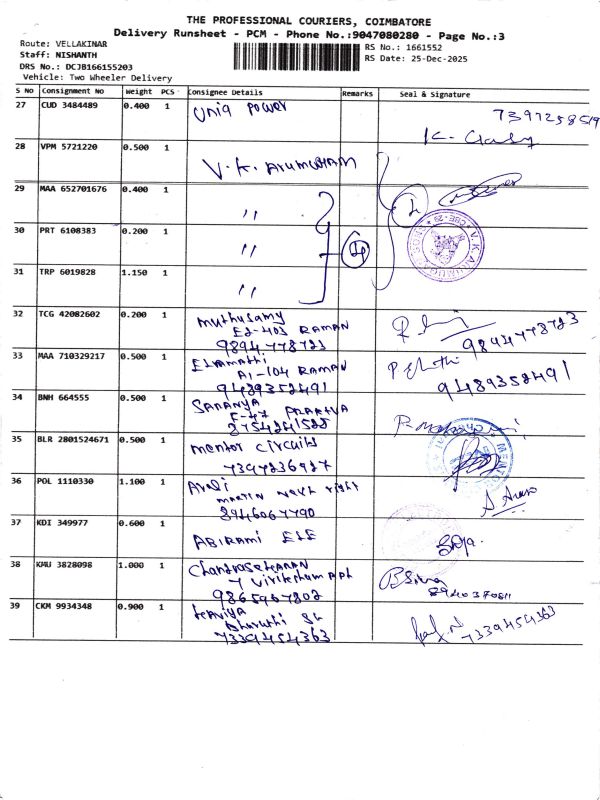 THE PROFESSIONAL COURIERS, COIMBATORE
Delivery Runsheet - PCM - Phone No.:9047080280 - Page No.:3
Route: VELLAKINAR
Staff: NISHANTH
DRS No.: DCJB166155203
Vehicle: Two Wheeler Delivery
RS No.: 1661552
RS Date: 25-Dec-2025
S No Consignment No Weight PCS Consignee Details Remarks Seal & Signature
27 CUD 3484489 0.400 1 Uniq Power
7397258519
28 VPM 5721220 0.500 1 V.K. Arumugam
29 MAA 652701676 0.400 1 ''
30 PRT 6108383 0.200 1 ''
31 TRP 6019828 1.150 1 ''
32 TCG 42082602 0.200 1 Muthusamy
E2-403 RAMAN
9894778723 9894778723
33 MAA 710329217 0.500 1 Elamathi
A1-104 RAMAN
9489352491 9489352491
34 BNH 664555 0.500 1 Saranya
F-47
8754241525
35 BLR 2801524671 0.500 1 Mentor Circuits
7397236927
36 POL 1110330 1.100 1
8946067790
37 KDI 349977 0.600 1 ABIRAMI ELE
38 KMU 3828098 1.000 1
9865967802 8940370811
39 CKM 9934348 0.900 1
7339454363 7339454363